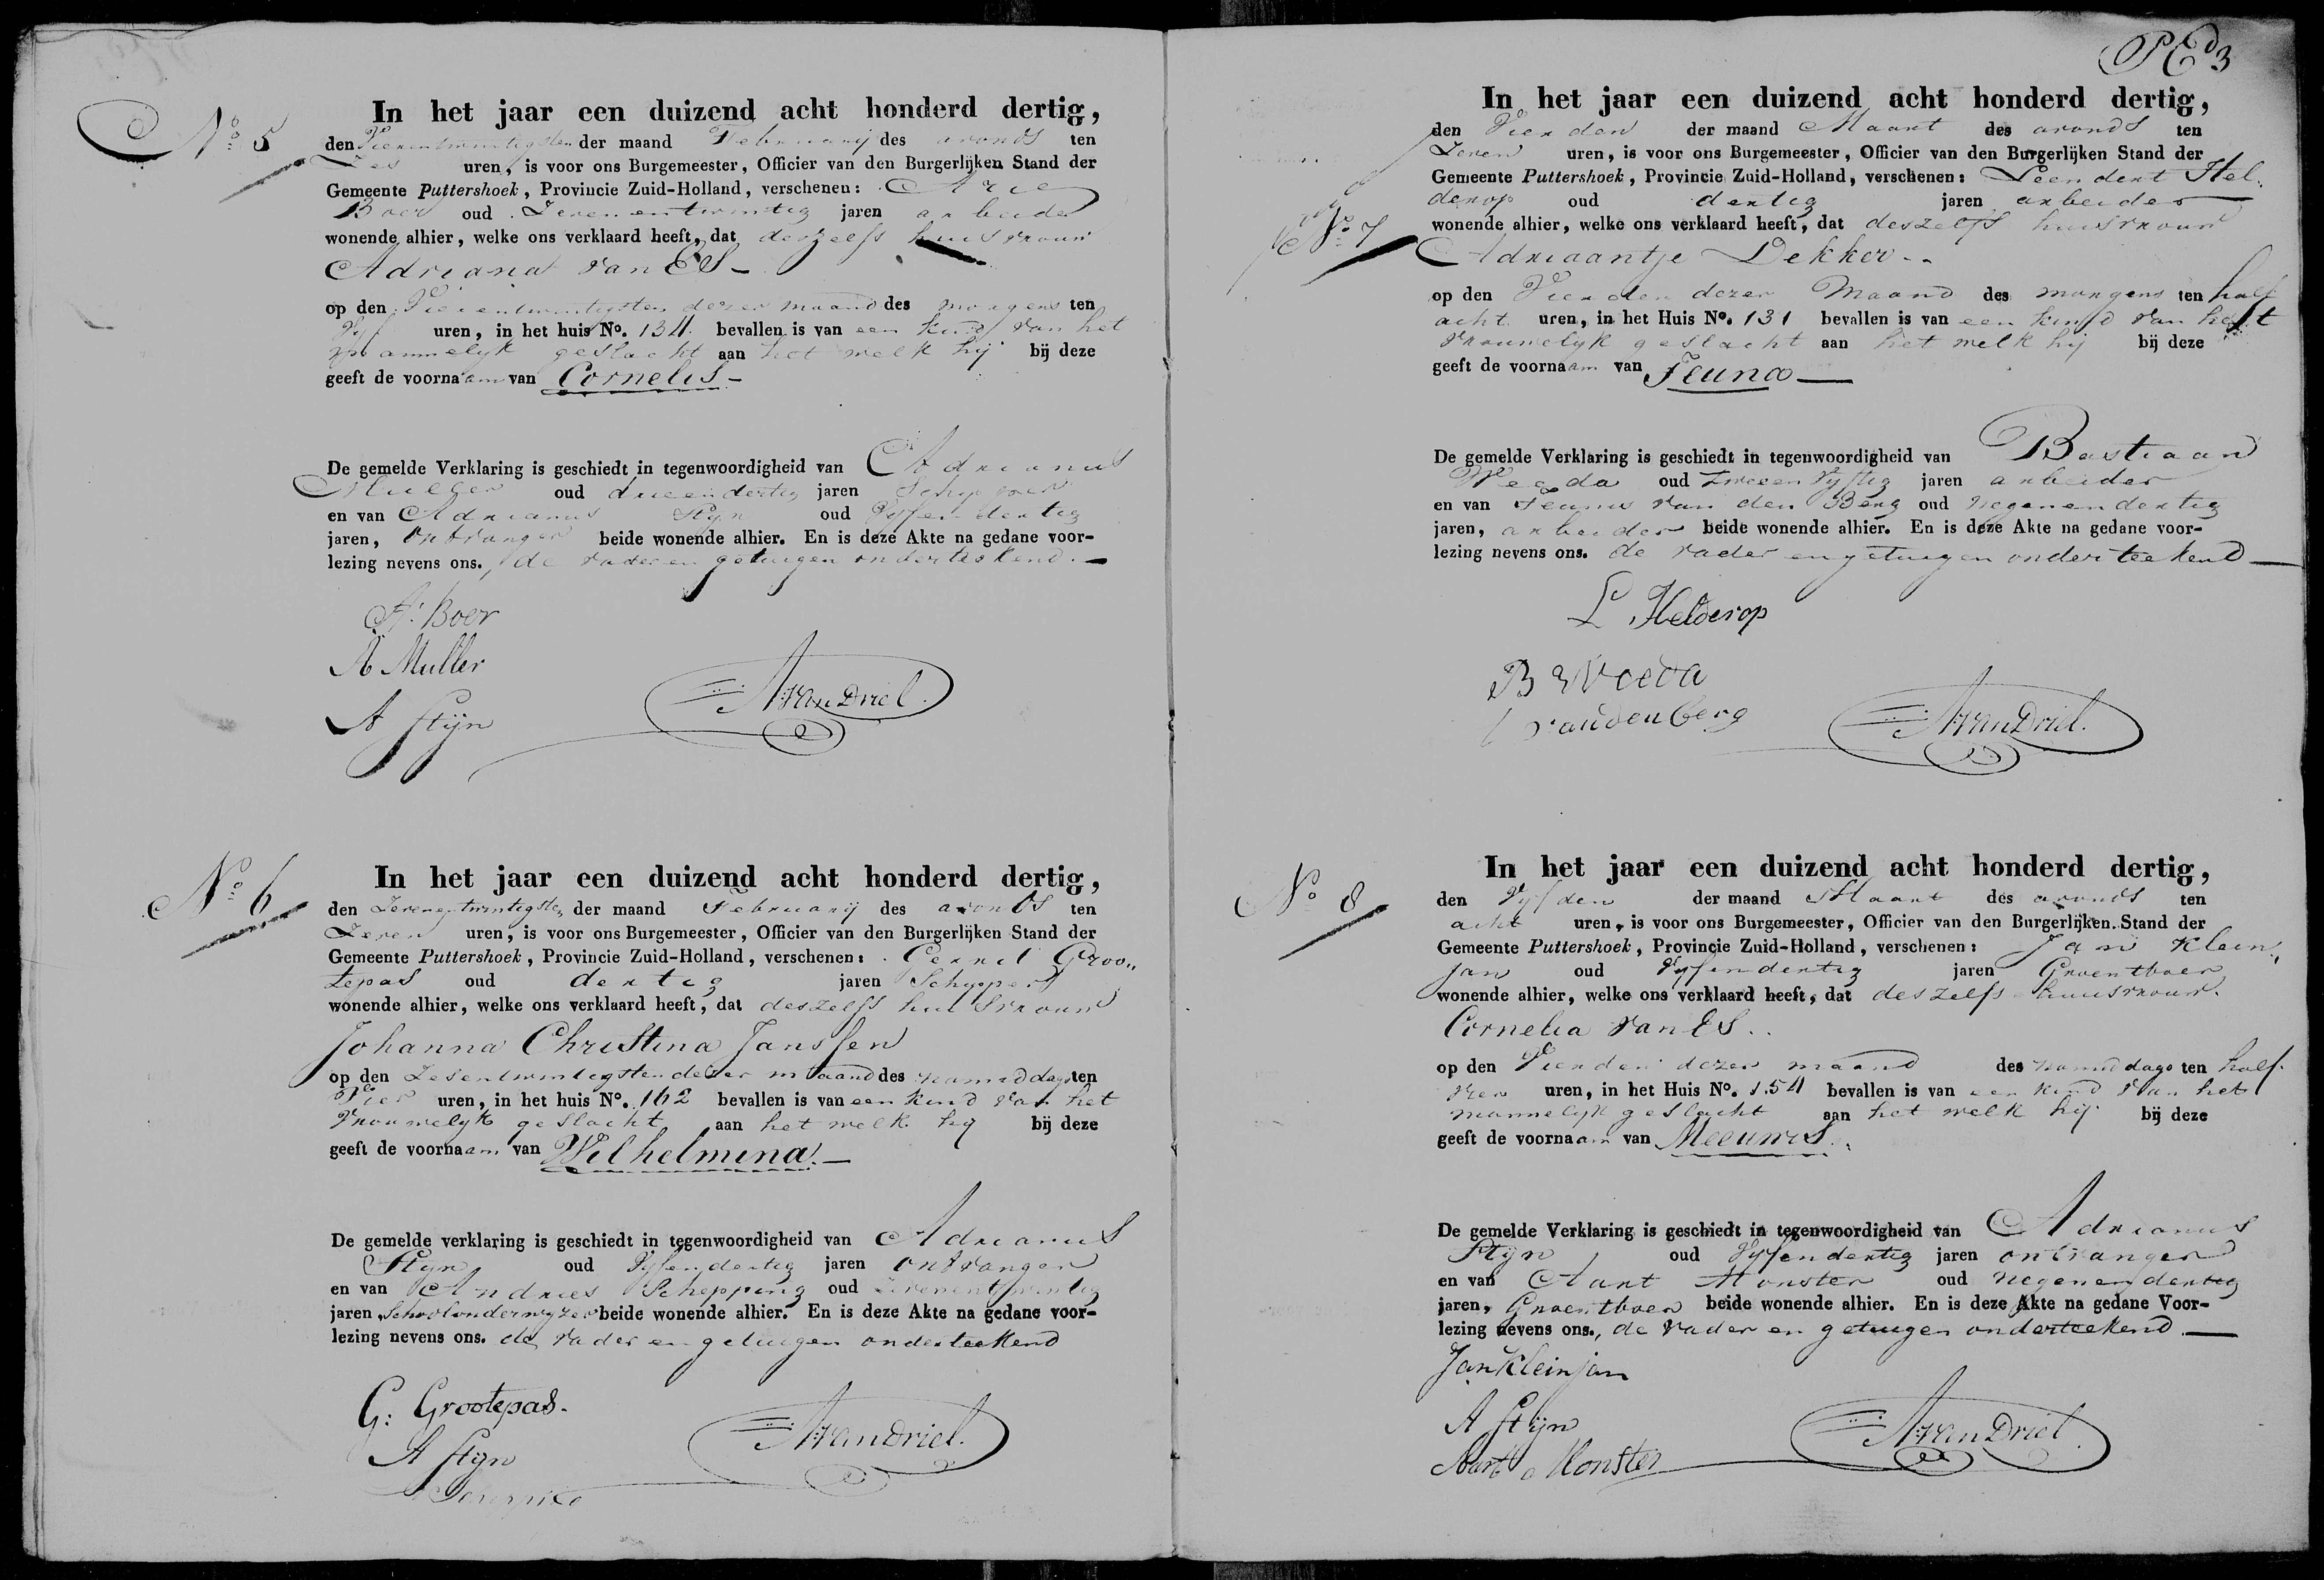 No 5
In het jaar een duizend acht honderd dertig,
den Vierentwintigsten der maand Februarij des avonds ten
Zes uren, is voor ons Burgemeester, Officier van den Burgerlijken Stand der
Gemeente Puttershoek, Provincie Zuid-Holland, verschenen: Arie
Boer oud Zevenentwintig jaren arbeider
wonende alhier, welke ons verklaard heeft, dat deszelfs huisvrouw
Adriana van Es
op den Vierentwintigsten dezer maand des morgens ten
Vyf uren, in het huis No. 134 bevallen is van een kind van het
mannelyk geslacht aan het welk hij bij deze
geeft de voornaam van Cornelis
De gemelde Verklaring is geschiedt in tegenwoordigheid van Adrianus
Muller oud drieendertig jaren Schipper
en van Adrianus Stijn oud Vyfendertig
jaren, Ontvanger beide wonende alhier. En is deze Akte na gedane voor-
lezing nevens ons, de vader en getuigen onderteekend.
A: Boer
A Muller
A Stijn
A van Driel.
No 6
In het jaar een duizend acht honderd dertig,
den Zevenentwintigsten der maand Februarij des avonds ten
Zeven uren, is voor ons Burgemeester, Officier van den Burgerlijken Stand der
Gemeente Puttershoek, Provincie Zuid-Holland, verschenen: Gerrit Groo„
tepas oud dertig jaren Schipper
wonende alhier, welke ons verklaard heeft, dat deszelfs huisvrouw
Johanna Christina Janssen
op den Zesentwintigsten dezer maand des namiddags ten
Vier uren, in het huis No. 162 bevallen is van een kind van het
Vrouwelyk geslacht aan het welk hij bij deze
geeft de voornaam van Wilhelmina.
De gemelde verklaring is geschiedt in tegenwoordigheid van Adrianus
Stijn oud Vyfendertig jaren Ontvanger
en van Andries Schepping oud Zevenentwintig
jaren, Schoolonderwyzer beide wonende alhier. En is deze Akte na gedane voor-
lezing nevens ons. de vader en getuigen onderteekend
G: Grootepas.
A Stijn
A van Driel.
3
No 7
In het jaar een duizend acht honderd dertig,
den Vierden der maand Maart des avonds ten
Zeven uren, is voor ons Burgemeester, Officier van den Burgerlijken Stand der
Gemeente Puttershoek, Provincie Zuid-Holland, verschenen: Leendert Hel„
derop oud dertig jaren arbeider
wonende alhier, welke ons verklaard heeft, dat deszelfs huisvrouw
Adriaantje Dekker
op den Vierden dezer Maand des morgens ten half
acht uren, in het Huis No. 131 bevallen is van een kind van het
Vrouwelyk geslacht aan het welk hij bij deze
geeft de voornaam van Teuna
De gemelde Verklaring is geschiedt in tegenwoordigheid van Bastiaan
Weeda oud Tweeenvyftig jaren arbeider
en van Teunis van den Berg oud Negenendertig
jaren, arbeider beide wonende alhier. En is deze Akte na gedane voor-
lezing nevens ons. de vader en getuigen onderteekend
L Helderop
B Weeda
van den Berg
A van Driel.
No 8
In het jaar een duizend acht honderd dertig,
den Vyfden der maand Maart des avonds ten
acht uren, is voor ons Burgemeester, Officier van den Burgerlijken Stand der
Gemeente Puttershoek, Provincie Zuid-Holland, verschenen: Jan Klein„
jan oud Vyfendertig jaren Groentboer
wonende alhier, welke ons verklaard heeft, dat deszelfs huisvrouw.
Cornelia van Es
op den Vierden dezer maand des namiddags ten half
vier uren, in het Huis No. 154 bevallen is van een kind van het
mannelyk geslacht aan het welk hij bij deze
geeft de voornaam van Meeuwis
De gemelde Verklaring is geschiedt in tegenwoordigheid van Adrianus
Stijn oud Vyfendertig jaren ontvanger
en van Aart Monster oud negenendertig
jaren, Groentboer beide wonende alhier. En is deze Akte na gedane Voor-
lezing nevens ons., de vader en getuigen onderteekend.
Jan Kleinjan
A Stijn
Aart Monster
A van Driel